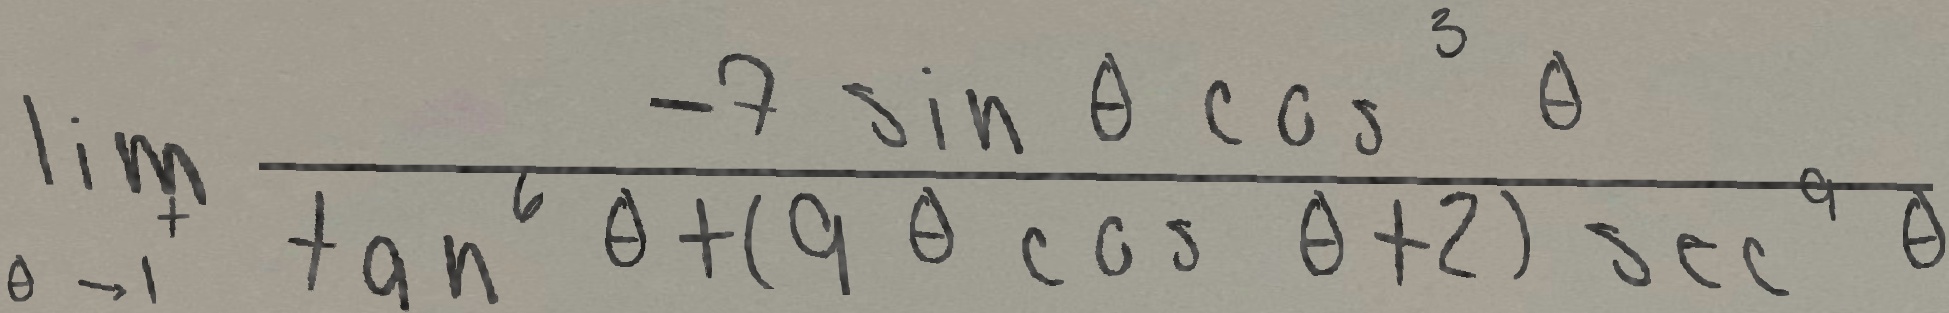 \lim_{\theta \to 1^+} \frac{-7 \sin \theta \cos^3 \theta}{\tan^6 \theta + (9 \theta \cos \theta + 2) \sec^9 \theta}